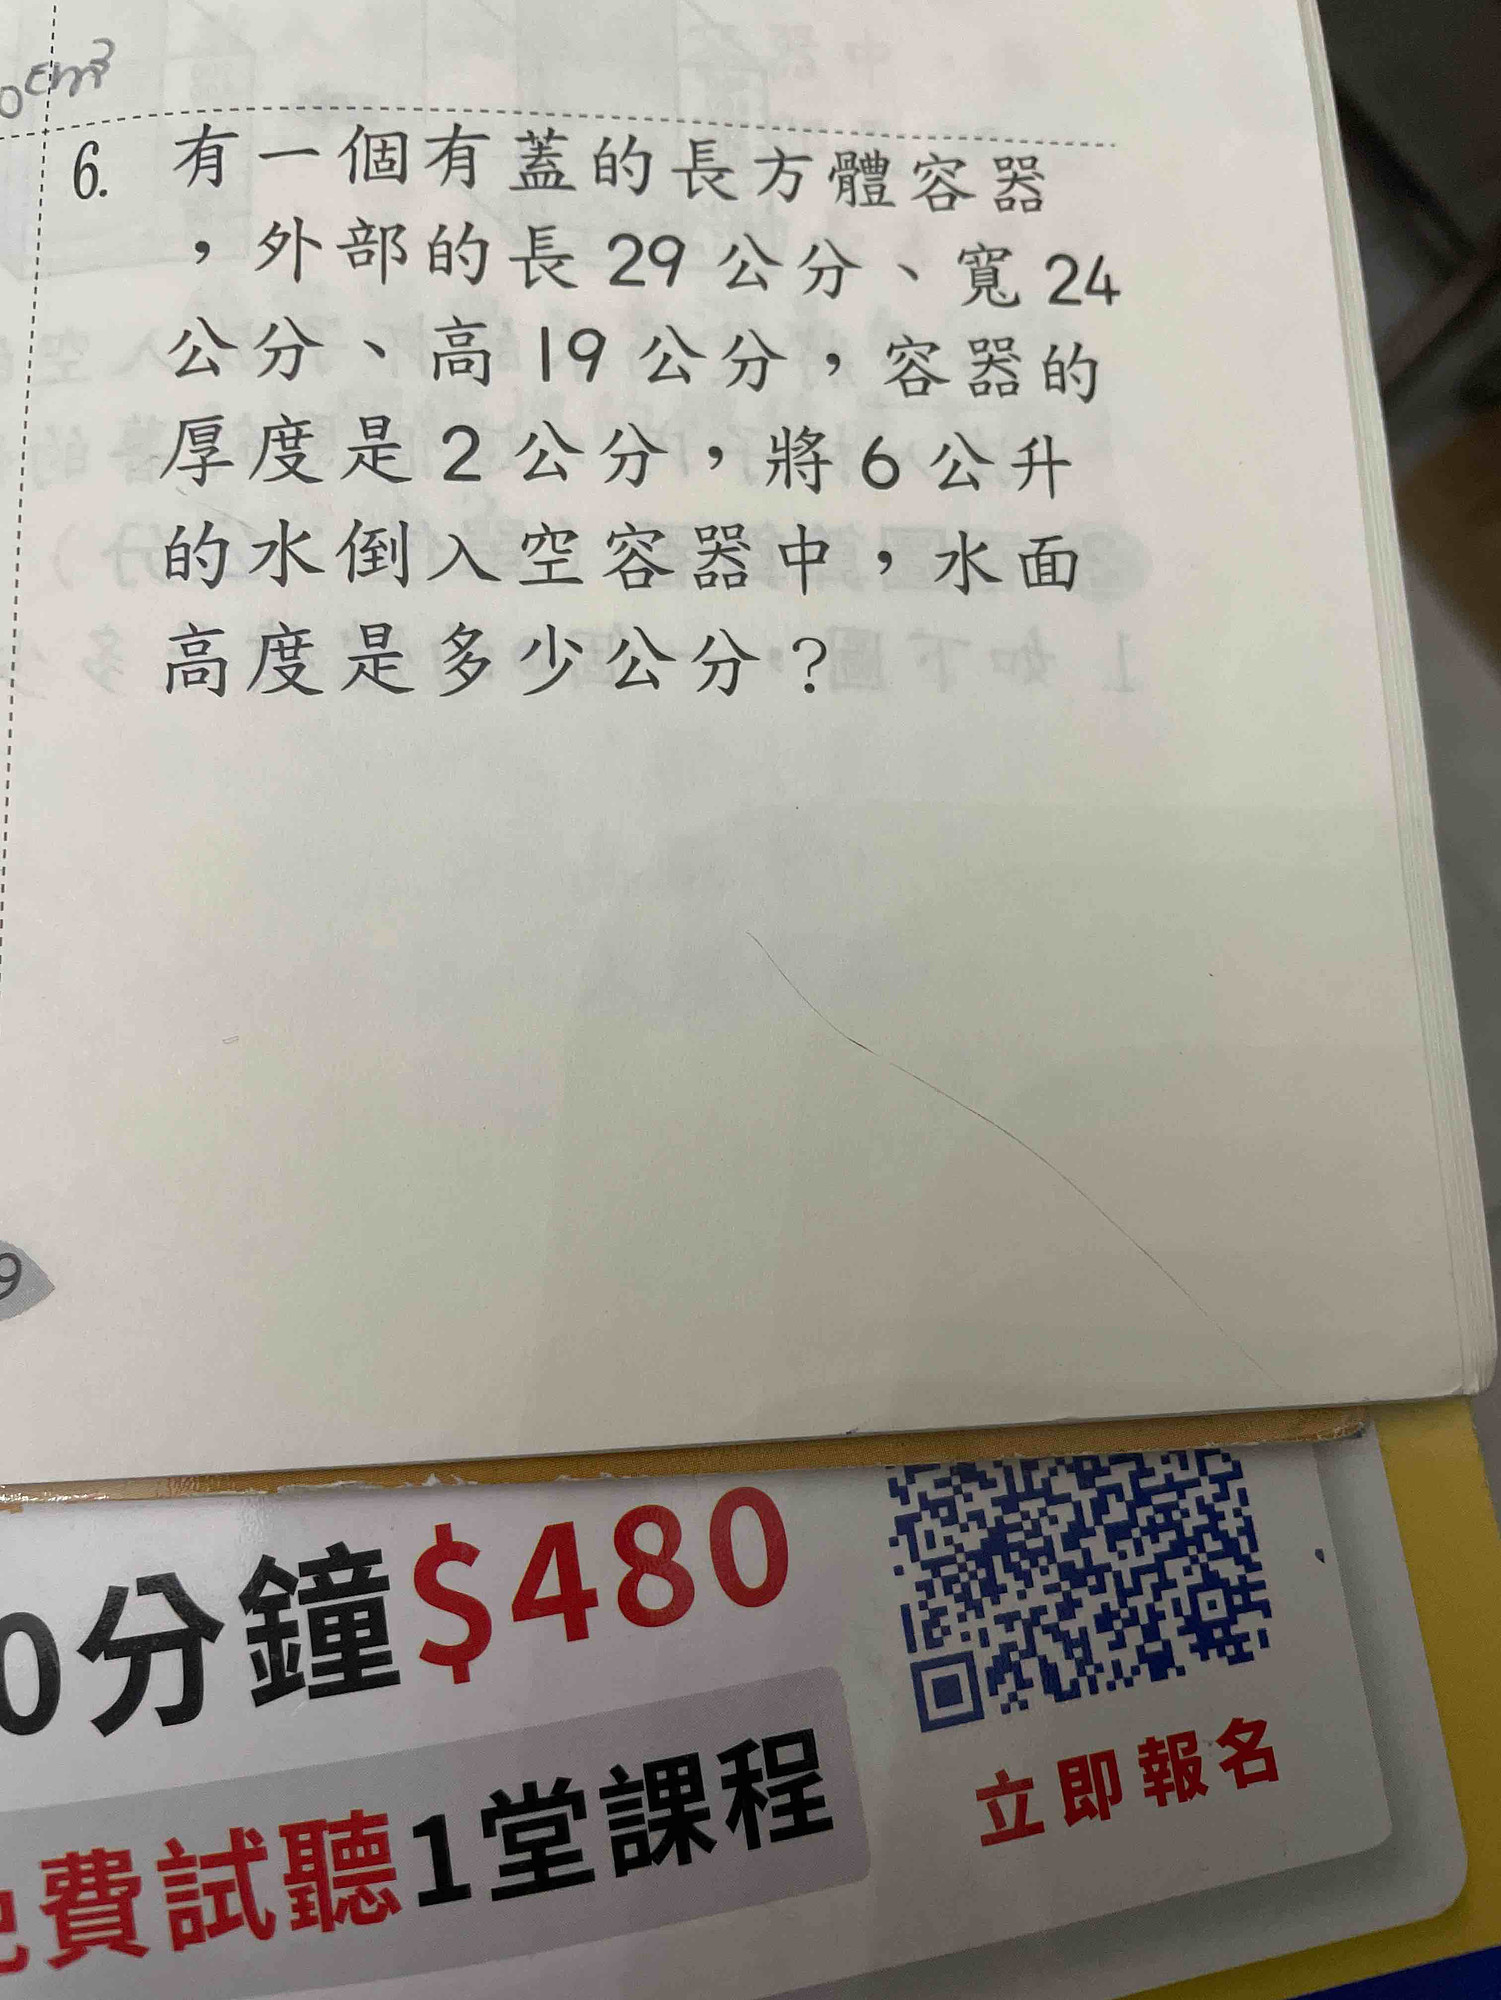 cm³
6. 有一個有蓋的長方體容器
，外部的長 29 公分、寬 24
公分、高 19 公分，容器的
厚度是 2 公分，將 6 公升
的水倒入空容器中，水面
高度是多少公分？
9
0分鐘$480
免費試聽1堂課程
立即報名